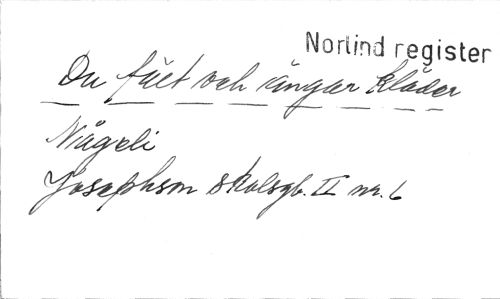 Norlind register
Du fält och ängar kläder
Nägeli
Josephson skolsgb. II nr. 6